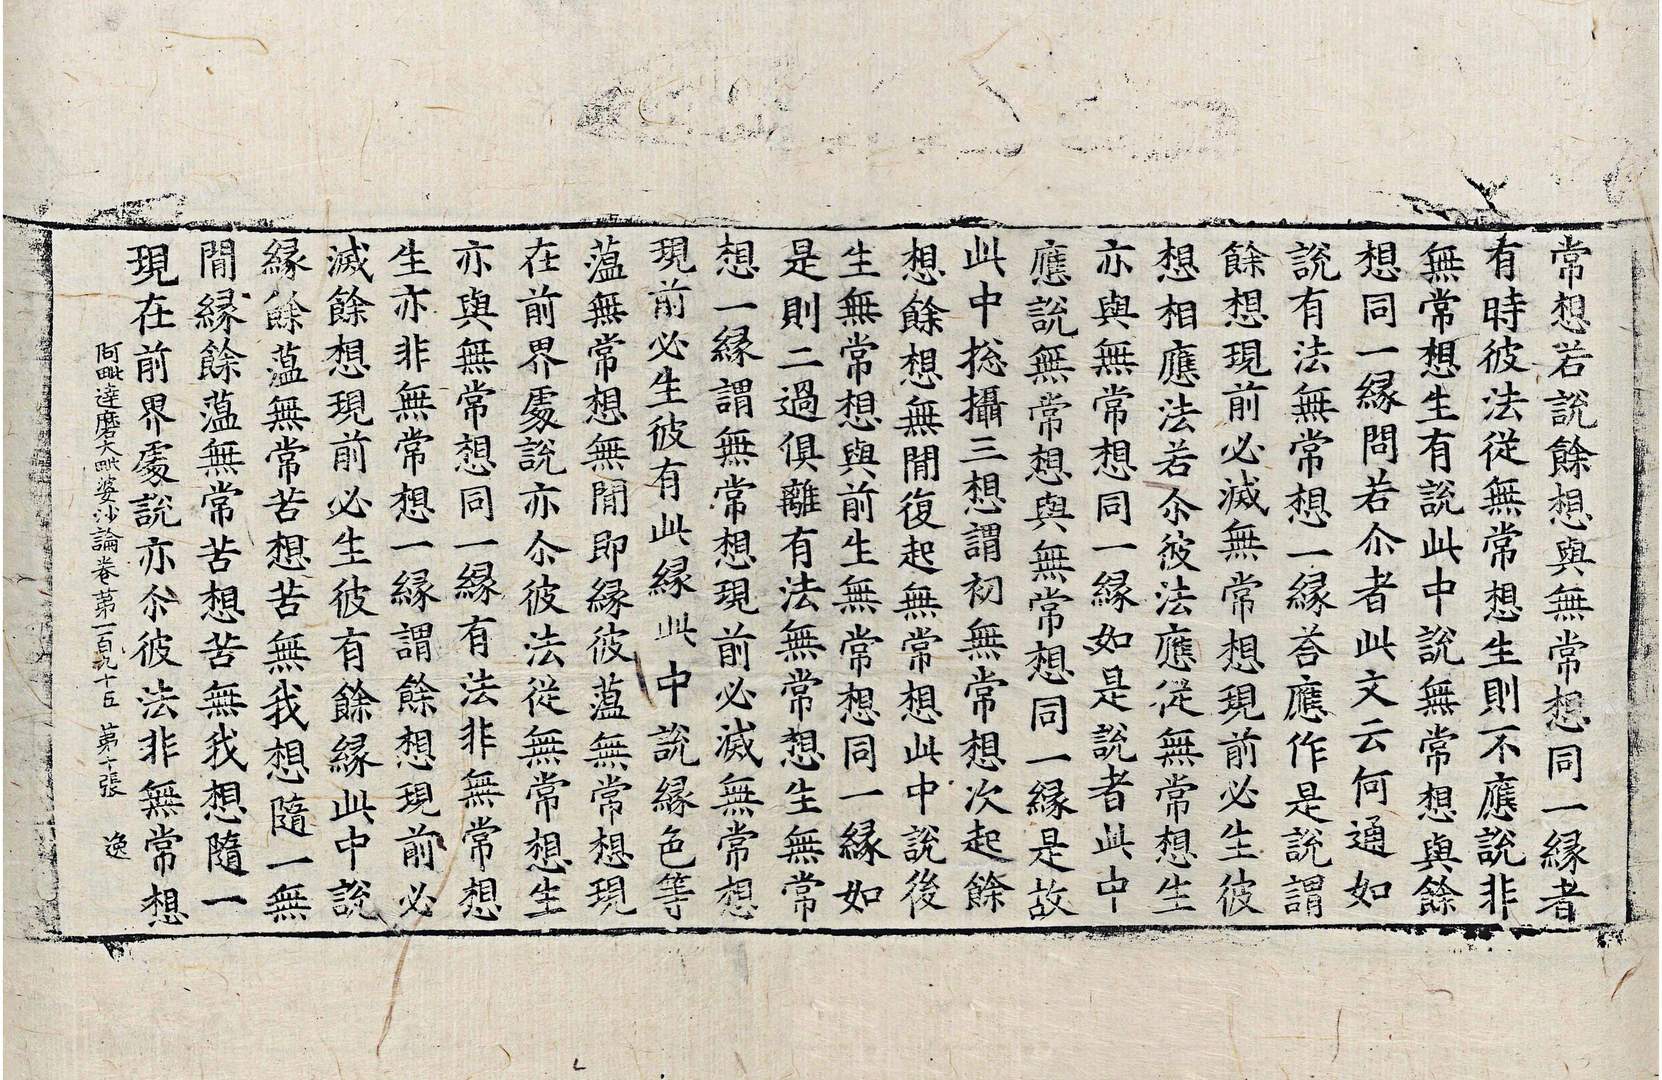 常想若說餘想與無常想同一縁者
有時彼法從無常想生則不應說非
無常想生有說此中說無常想與餘
想同一縁問若尒者此文云何通如
說有法無常想一縁荅應作是說謂
餘想現前必滅無常想現前必生彼
想相應法若尒彼法應從無常想生
亦與無常想同一縁如是說者此中
應說無常想與無常想同一縁是故
此中捴攝三想謂初無常想次起餘
想餘想無閒復起無常想此中說後
生無常想與前生無常想同一縁如
是則二過俱離有法無常想生無常
想一縁謂無常想現前必滅無常想
現前必生彼有此縁此中說縁色等
薀無常想無閒即縁彼薀無常想現
在前界處說亦尒彼法從無常想生
亦與無常想同一縁有法非無常想
生亦非無常想一縁謂餘想現前必
滅餘想現前必生彼有餘縁此中說
縁餘薀無常苦想苦無我想隨一無
閒縁餘薀無常苦想苦無我想隨一
現在前界處說亦尒彼法非無常想
阿毗達磨大毗婆沙論卷苐一百九十五 苐十張 逸